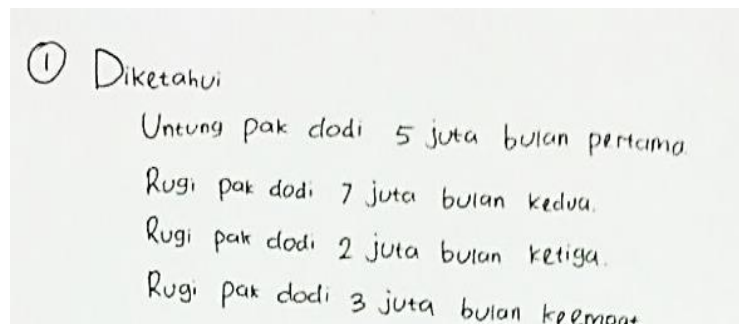 ① Diketahui
Untung pak dodi 5 juta bulan pertama
Rugi pak dodi 7 juta bulan kedua.
Rugi pak dodi 2 juta bulan ketiga.
Rugi pak dodi 3 juta bulan keempat